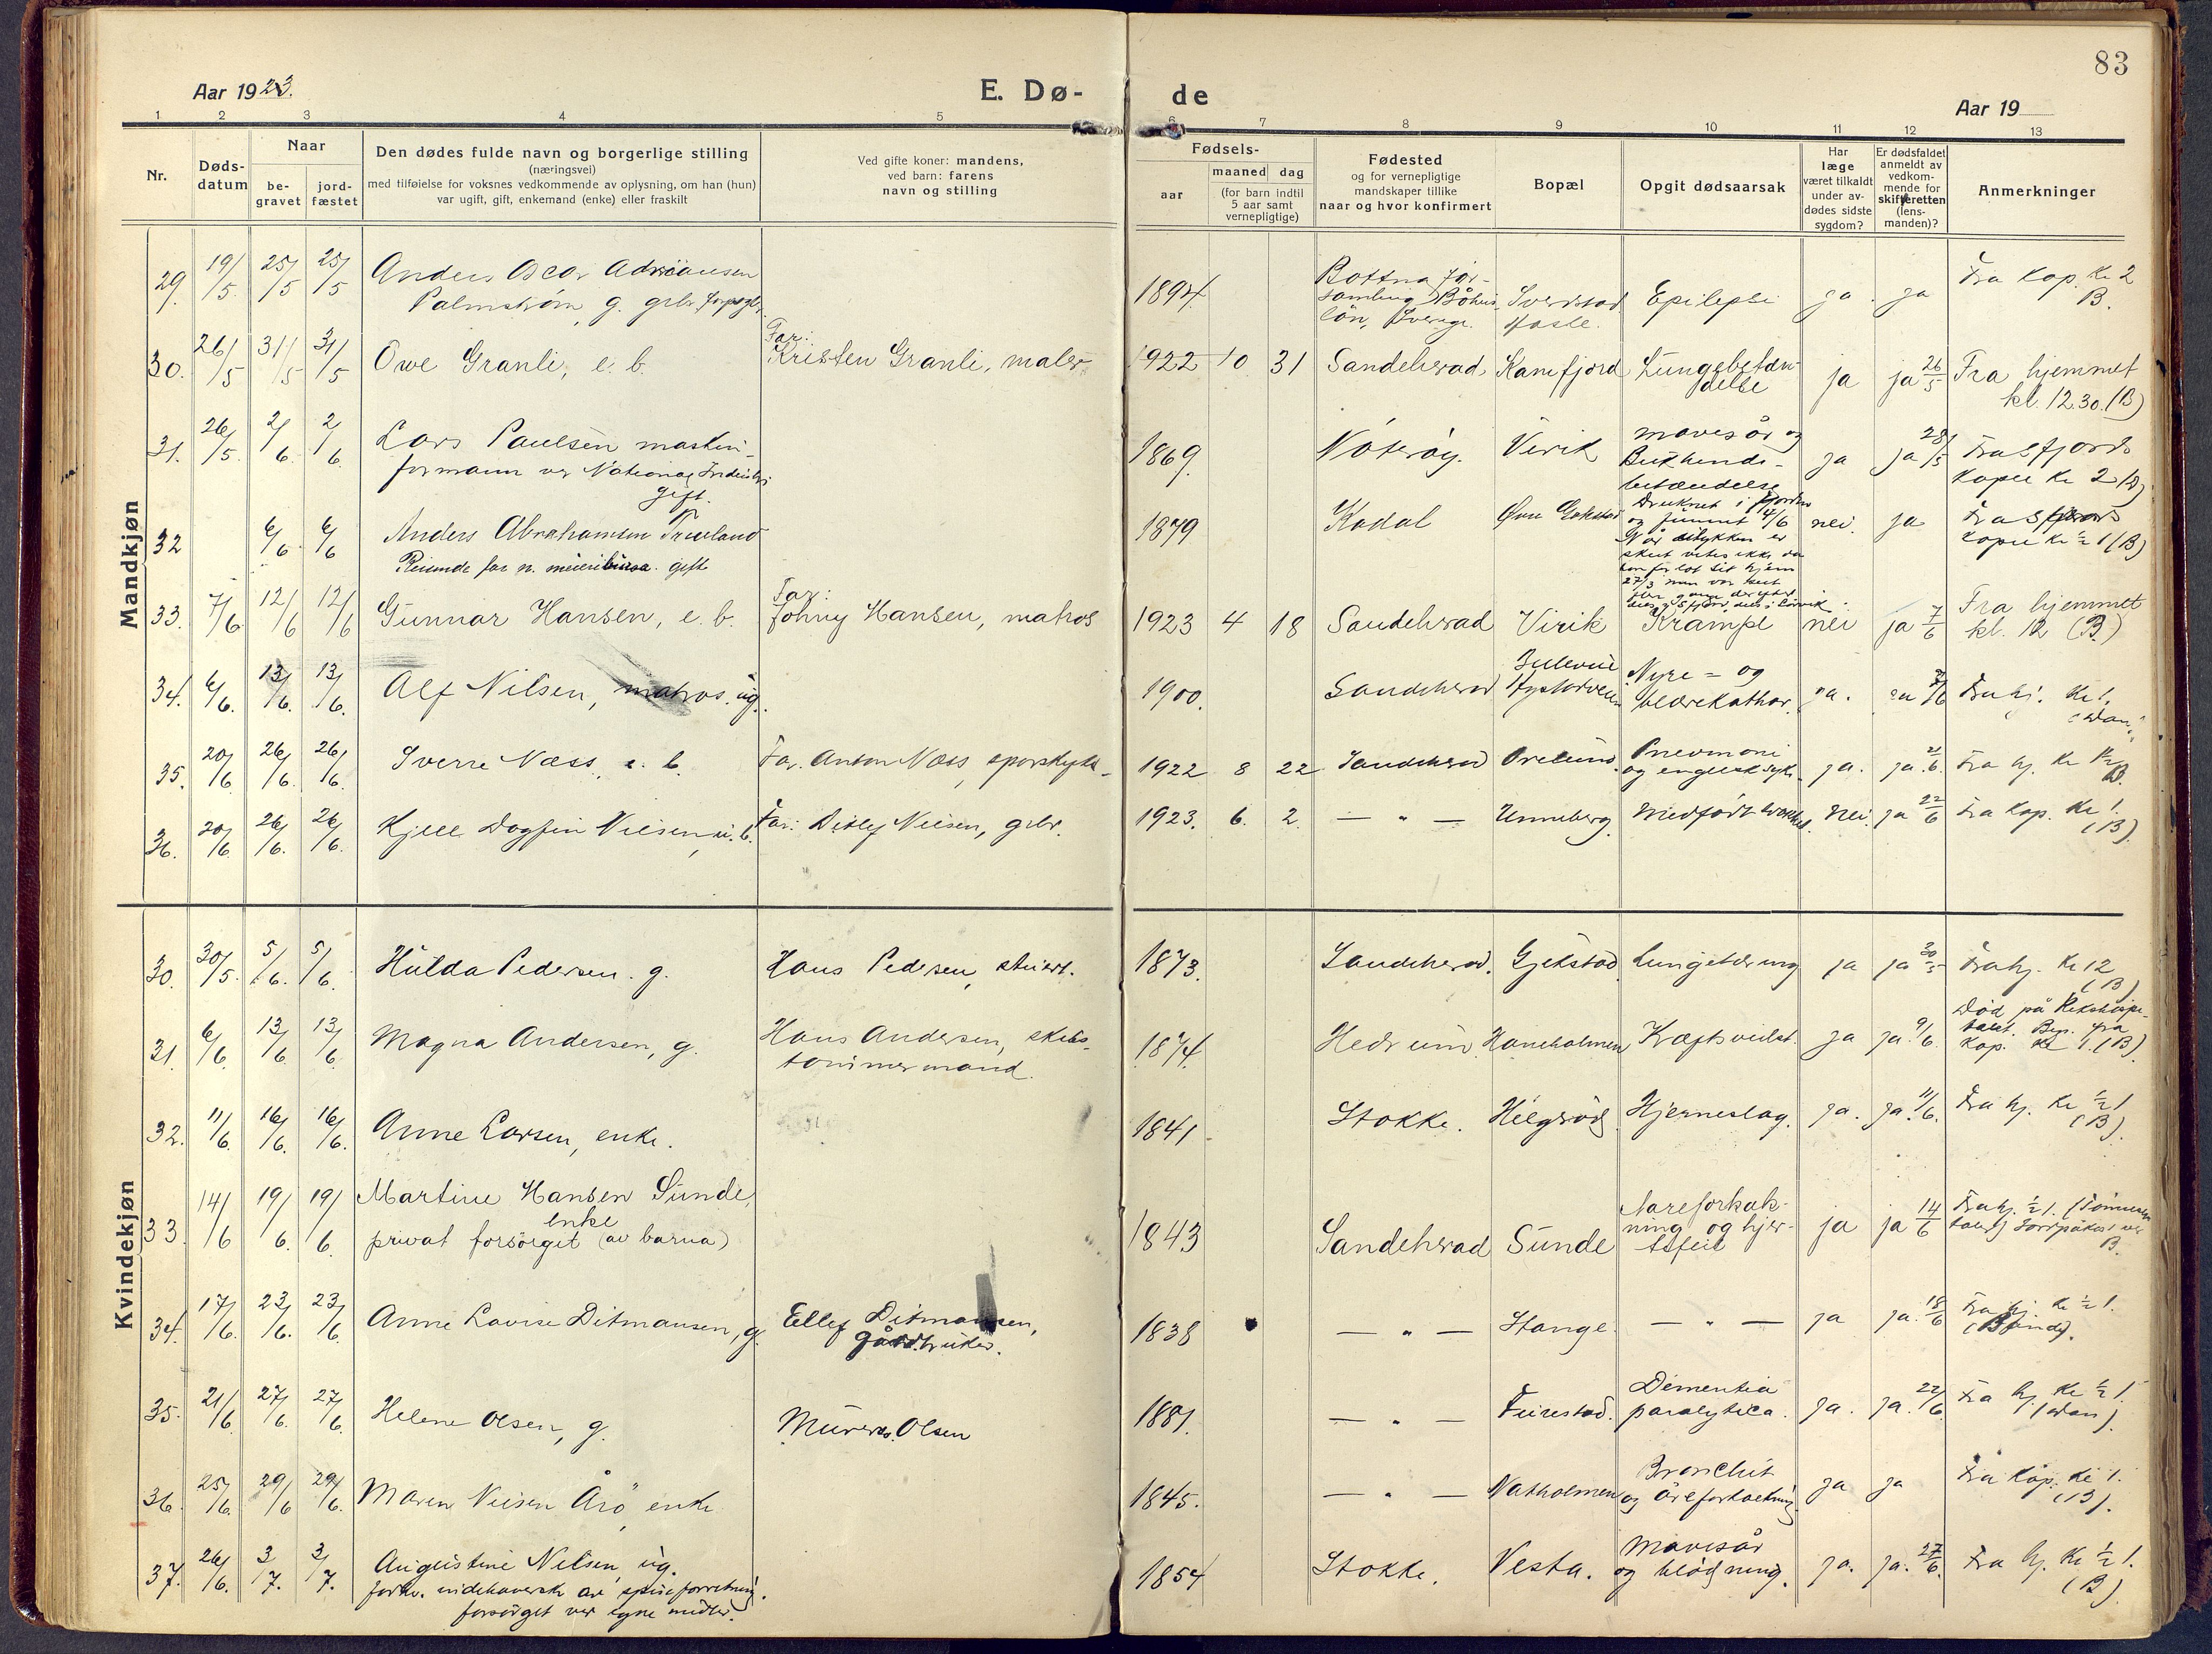 83
Aar 1923.
E. Dø-
de
Aar 19
1 2 3 4 5 6 7 8 9 10 11 12 13
Nr.
Døds-
datum
Naar
be-
gravet
jord-
fæstet
Den dødes fulde navn og borgerlige stilling
(næringsvei)
med tilføielse for voksnes vedkommende av oplysning, om han (hun)
var ugift, gift, enkemand (enke) eller fraskilt
Ved gifte koner: mandens,
ved barn: farens
navn og stilling
Fødsels-
aar
maaned dag
(for barn indtil
5 aar samt
vernepligtige)
Fødested
og for vernepligtige
mandskaper tillike
naar og hvor konfirmert
Bopæl
Opgit dødsaarsak
Har
læge
været tilkaldt
under av-
dødes sidste
sygdom?
Er dødsfaldet
anmeldt av
vedkom-
mende for
skifteretten
(lens-
manden)?
Anmerkninger
Mandkjøn
29. 19/5. 25/5 25/5 Anders Oscar Adriansen
Palmstrøm, g. grbr. 1894 Bottna for-
samling, Båhus
län, Sverige. Epilepsi ja. ja Fra kap. kl 2
B.
30. 26/5 31/5 31/5 Owe Granli, e. b. Far:
Kristen Granli, maler 1922 10 31 Sandeherad. Kamfjord Lungebetæn-
delse ja ja 26/5 Fra hjemmet
kl. 12.30. (B)
31. 26/5. 2/6. 2/6. Lars Paulsen maskin-
formann ved National Industri
gift. 1869. Nøterøy. Virik mavesår og
Bukhinde-
betændelse ja ja 28/5 Fra Sfjords
kapel kl 2 (B)
32 6/6. 6/6 Anders Abrahamsen
Reisende for n. meieribursa. gift 1879 Kodal Øvre Gokstad Druknet i fjorden
og funnet 4/6
Når ulykken er
skeet vites ikke da
han forlot sit hjem
27/3 nei. ja Fra Sfjords
kapel kl ½ 1 (B)
33. 7/6 12/6 12/6 Gunnar Hansen, e. b. Far:
Johny Hansen, matros 1923 4 18 Sandeherad Virik Krampe nei ja 7/6 Fra hjemmet
kl. 12 (B)
34. 6/6. 13/6. 13/6. Alf Nilsen, matros. ug. 1900. Sandeherad Nyre- og
blærekathar. ja. Fra hj. kl 1.
35. 20/6 26/6. 26/6. Sverre Næss, e. b. Far. Anton Næss, 1922 8 22 Sandeherad Pnevmoni
og engelsk syke ja. ja. 21/6. Fra hj. kl ½ 2
B.
36. 20/6. 26/6. 26/6. Kjell Dagfin Nilsen, u. b. Far: Detlef Nilsen, grbr. 1923. 6. 2. — " — Unneberg. Medfødt svakhet. Nei. ja 22/6 Fra kap. kl 1
(B).
Kvindekjøn
30. 30/5. 5/6. 5/6. Hulda Pedersen. g. Hans Pedersen, stuert. 1873. Sandeherad. Gjekstad Lungetæring ja ja 30/5 Fra hj. kl 12
(B)
31. 6/6. 13/6 13/6 Magna Andersen, g. Hans Andersen, skibs-
tømmermand. 1874. Hedrum Haneholmen Kræftsvulst. ja ja. 9/6. Død på Rikshospi-
talet. Beg. fra
kap. kl 1. (B).
32. 11/6. 16/6. 16/6. Anne Larsen, enke. 1841 Stokke. Helgerød Hjerneslag. ja. ja. 11/6. Fra hj. kl ½ 1
(B).
33. 14/6 19/6. 19/6. Martine Hansen Sunde,
enke
privat forsørget (av barna) 1843 Sandeherad Sunde Aareforkalk-
ning og hjer-
tefeil ja ja 14/6 Fra hj. ½ 1.
B.
34. 17/6. 23/6. 23/6. Anne Lovise Ditmansen, g. Ellef Ditmansen,
gårdbruker. 1838 — " — Stange. — " — ja ja. 18/6 Fra hj. kl ½ 1.
35. 21/6. 27/6. 27/6. Helene Olsen, g. Murer Olsen 1881. — " — Furestad. Dementia
paralytica. ja. ja. 22/6 Fra hj. kl ½ 1.
36. 25/6. 29/6 29/6. Maren Nilsen Årø, enke 1845. — " — Natholmen Bronchit
og åreforkalkning ja ja Fra kap. kl 1.
(B).
37. 26/6. 3/7. 3/7. Augustine Nilsen, ug.
forh. indehaverske av spiseforretning.
forsørget ved egne midler. 1854 Stokke. Vesta. Mavesår
og blødning. ja. ja. 27/6. Fra hj. kl ½ 1.
(B)